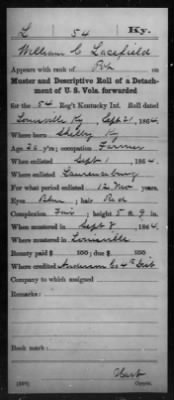 L 54 Ky.
William C. Lacefield
Appears with rank of Pvt. on
Muster and Descriptive Roll of a Detach-
ment of U. S. Vols. forwarded
for the 54 Reg't Kentucky Inf. Roll dated
Louisville Ky, Sept 21, 1864.
Where born Shelby Ky
Age 26 y'rs; occupation Farmer
When enlisted Sept 1, 1864.
Where enlisted Lawrenceburg
For what period enlisted 12 Mo years.
Eyes Blue; hair Red
Complexion Fair; height 5 ft. 9 in.
When mustered in Sept 8, 1864.
Where mustered in Louisville
Bounty paid $ 100; due $ 100
Where credited Anderson Co 4" Dist
Company to which assigned
Remarks:
Book mark:
(339) Copyist.